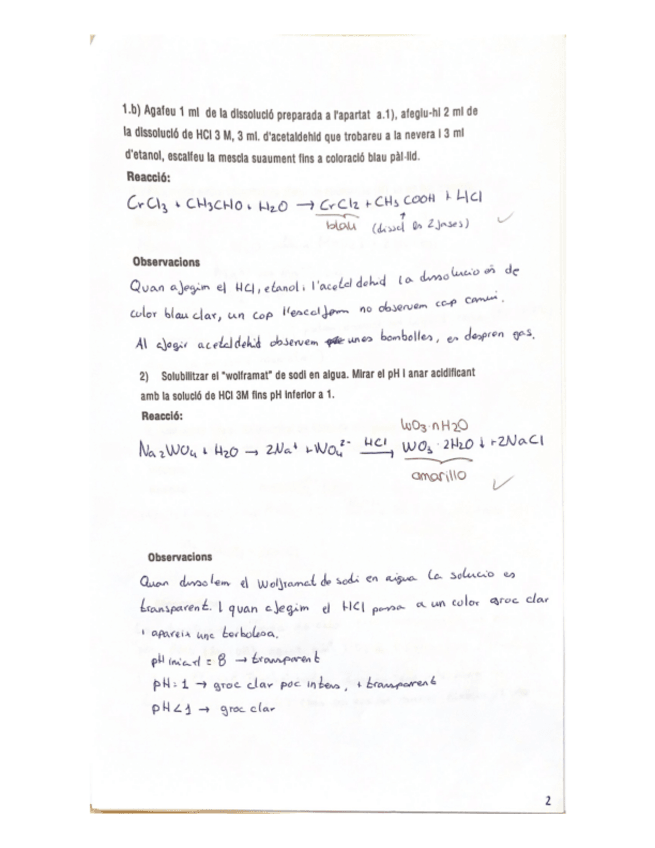 1.b) Agafeu 1 ml de la dissolució preparada a l'apartat a.1), afegiu-hi 2 ml de
la dissolució de HCl 3 M, 3 ml. d'acetaldehid que trobareu a la nevera i 3 ml
d'etanol, escalfeu la mescla suaument fins a coloració blau pàl·lid.
Reacció:
CrCl3 + CH3CHO + H2O → CrCl2 + CH3COOH + HCl
blau (dissol en 2 fases)
Observacions
Quan afegim el HCl, etanol i l'acetaldehid la dissolucio és de
color blau clar, un cop l'escalfem no observem cap canvi.
Al afegir acetaldehid observem unes bombolles, es despren gas.
2) Solubilitzar el "wolframat" de sodi en aigua. Mirar el pH i anar acidificant
amb la solució de HCl 3M fins pH inferior a 1.
Reacció:
WO3·nH2O
Na2WO4 + H2O → 2Na+ + WO4 2- HCl → WO3·2H2O ↓ + 2NaCl
amarillo
Observacions
Quan dissolem el Wolframat de sodi en aigua la solucio es
transparent. I quan afegim el HCl passa a un color groc clar
i apareix una terbolesa.
pH inicial = 8 → transparent
pH = 1 → groc clar poc intens, + transparent
pH < 1 → groc clar
2